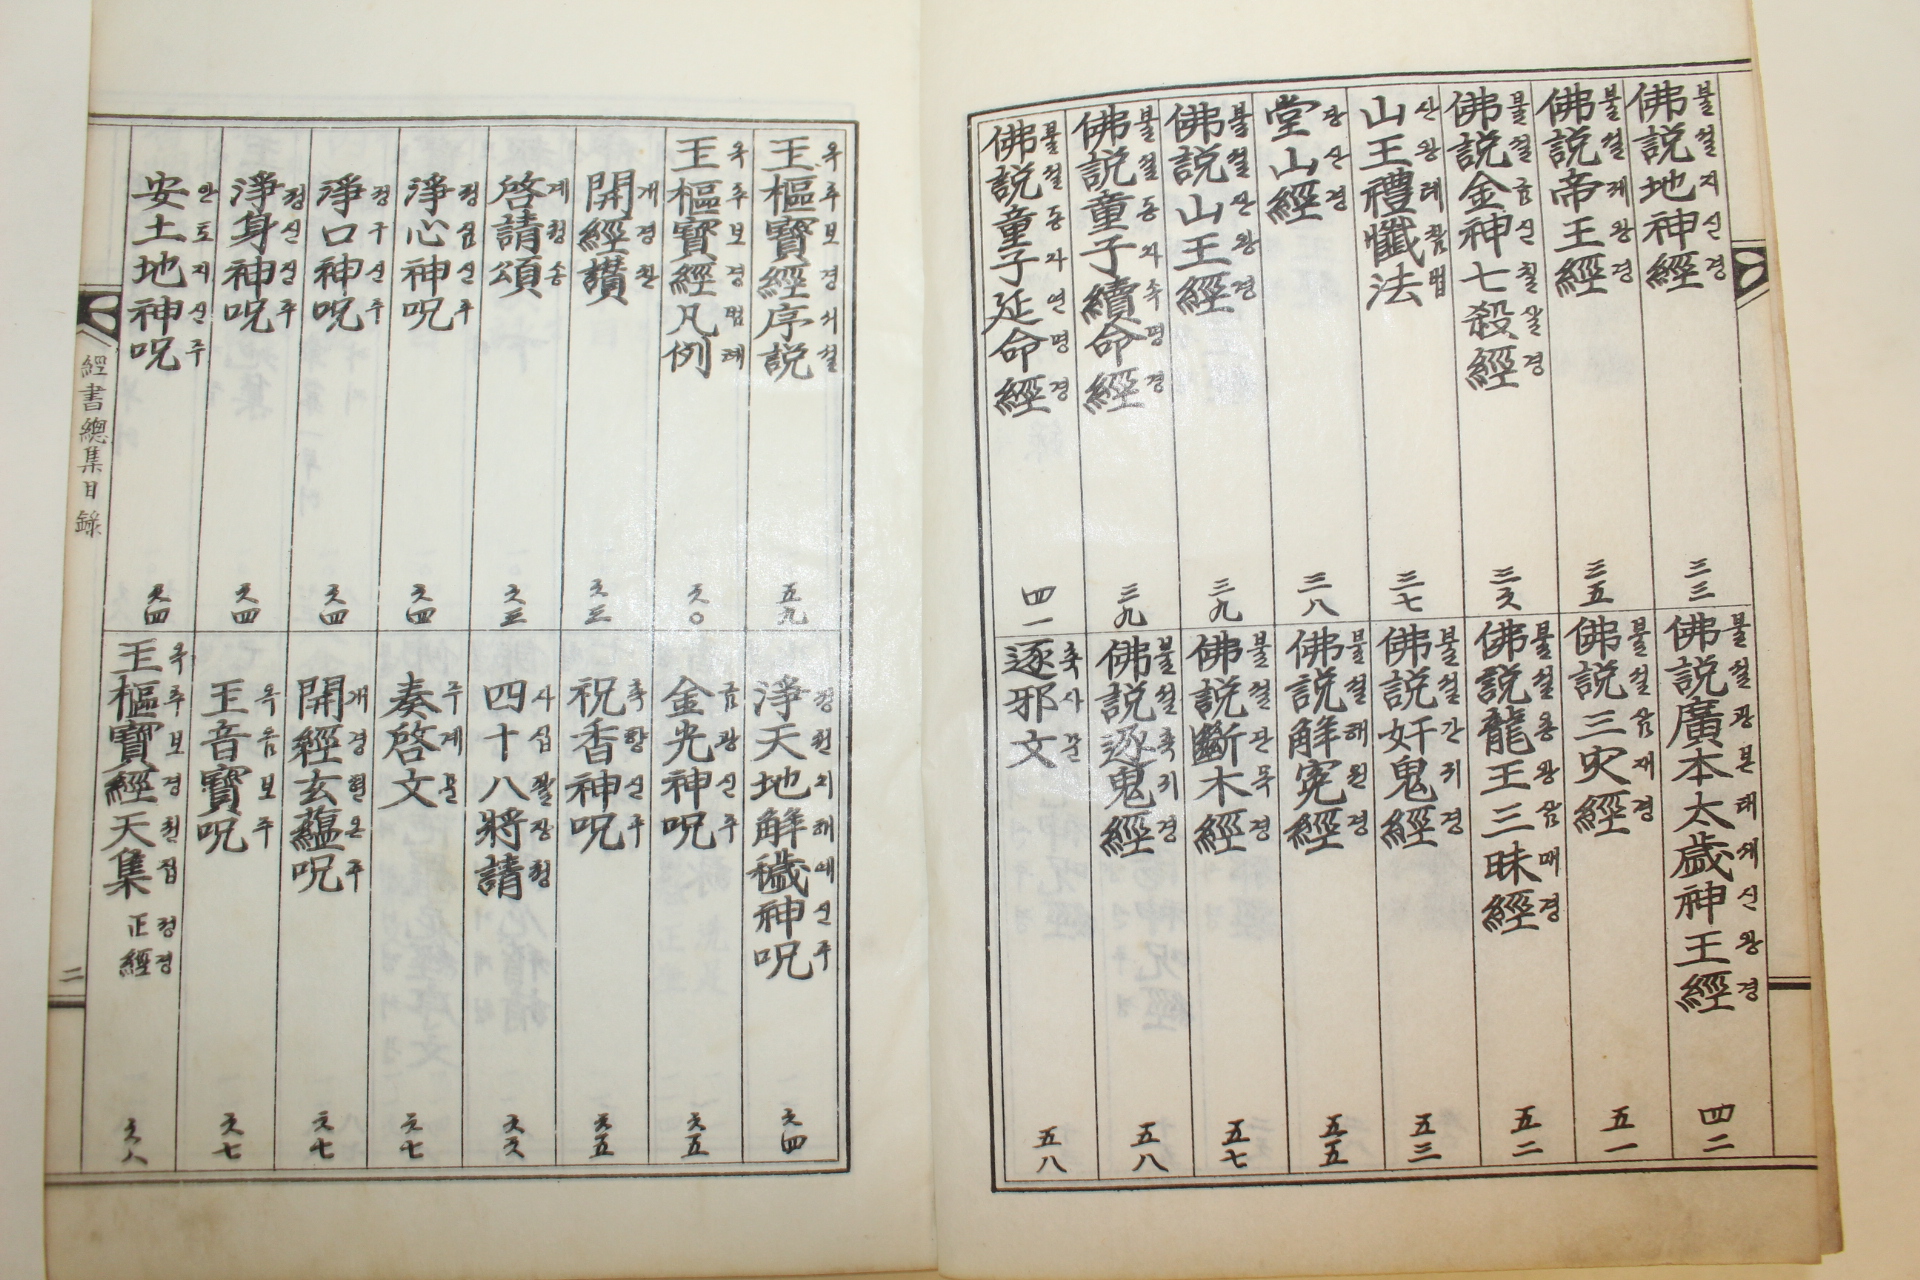 佛說地神經 불설지신경 三三
佛說帝王經 불설제왕경 三五
佛說金神七殺經 불설금신칠살경 三六
山王禮懺法 산왕례참법 三七
堂山經 당산경 三八
佛說山王經 불설산왕경 三九
佛說童子續命經 불설동자속명경 三九
佛說童子延命經 불설동자연명경 四一
佛說廣本太歲神王經 불설광본태세신왕경 四二
佛說三灾經 불설삼재경 五一
佛說龍王三昧經 불설용왕삼매경 五二
佛說奸鬼經 불설간귀경 五三
佛說解寃經 불설해원경 五五
佛說斷木經 불설단목경 五七
佛說逐鬼經 불설축귀경 五八
逐邪文 축사문 五八
玉樞寶經序說 옥추보경서설 五九
玉樞寶經凡例 옥추보경범례 六〇
開經讚 개경찬 六三
啓請頌 계청송 六三
淨心神呪 정심신주 六四
淨口神呪 정구신주 六四
淨身神呪 정신신주 六四
安土地神呪 안토지신주 六四
淨天地解穢神呪 정천지해예신주 六四
金光神呪 금광신주 六五
祝香神呪 축향신주 六五
四十八將請 사십팔장청 六六
奏啓文 주계문 六七
開經玄蘊呪 개경현온주 六七
玉音寶呪 옥음보주 六七
玉樞寶經天集 正經 옥추보경천집 정경 六八
經書總集目錄
二